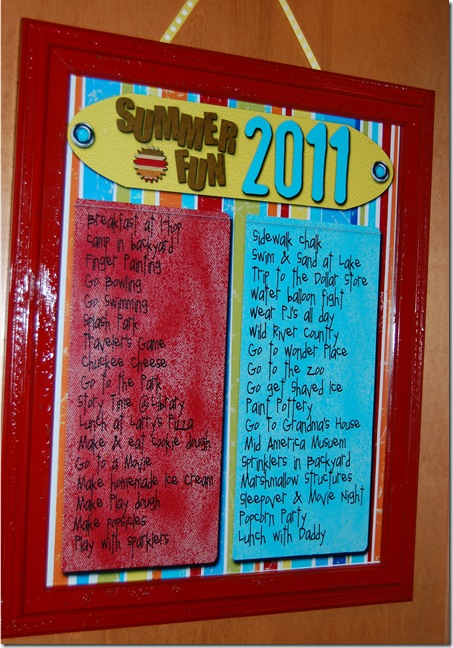 SUMMER FUN 2011
Breakfast at Ihop
Camp in backyard
Finger Painting
Go Bowling
Go Swimming
Splash Park
Travelers Game
Chuckee Cheese
Go to the Park
Story Time @ Library
Lunch at Larry's Pizza
Make & eat cookie dough
Go to a Movie
Make homemade Ice Cream
Make Play dough
Make popsicles
Play with sparklers
Sidewalk chalk
Swim & Sand at Lake
Trip to the Dollar Store
Water balloon fight
Wear PJ's all day
Wild River Country
Go to Wonder Place
Go to the Zoo
Go get Shaved Ice
Paint Pottery
Go to Grandma's House
Mid America Musuem
Sprinklers in Backyard
Marshmallow Structures
Sleepover & Movie Night
Popcorn Party
Lunch with Daddy